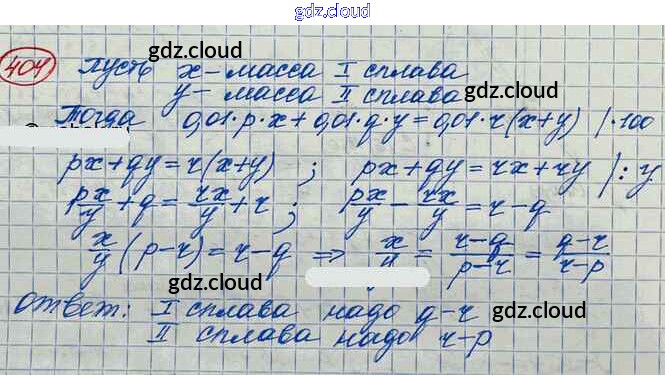 gdz.cloud
404 gdz.cloud
Пусть x – масса I сплава
y – масса II сплава gdz.cloud
Тогда 0,01·p·x+0,01·q·y=0,01·r(x+y) |·100
px+qy=r(x+y) ; px+qy=rx+ry |:y
px/y + q = rx/y + r ; px/y – rx/y = r–q
x/y (p–r)=r–q ⇒ x/y = r–q/p–r = q–r/r–p
gdz.cloud gdz.cloud
Ответ: I сплава надо q–r
II сплава надо r–p
gdz.cloud gdz.cloud